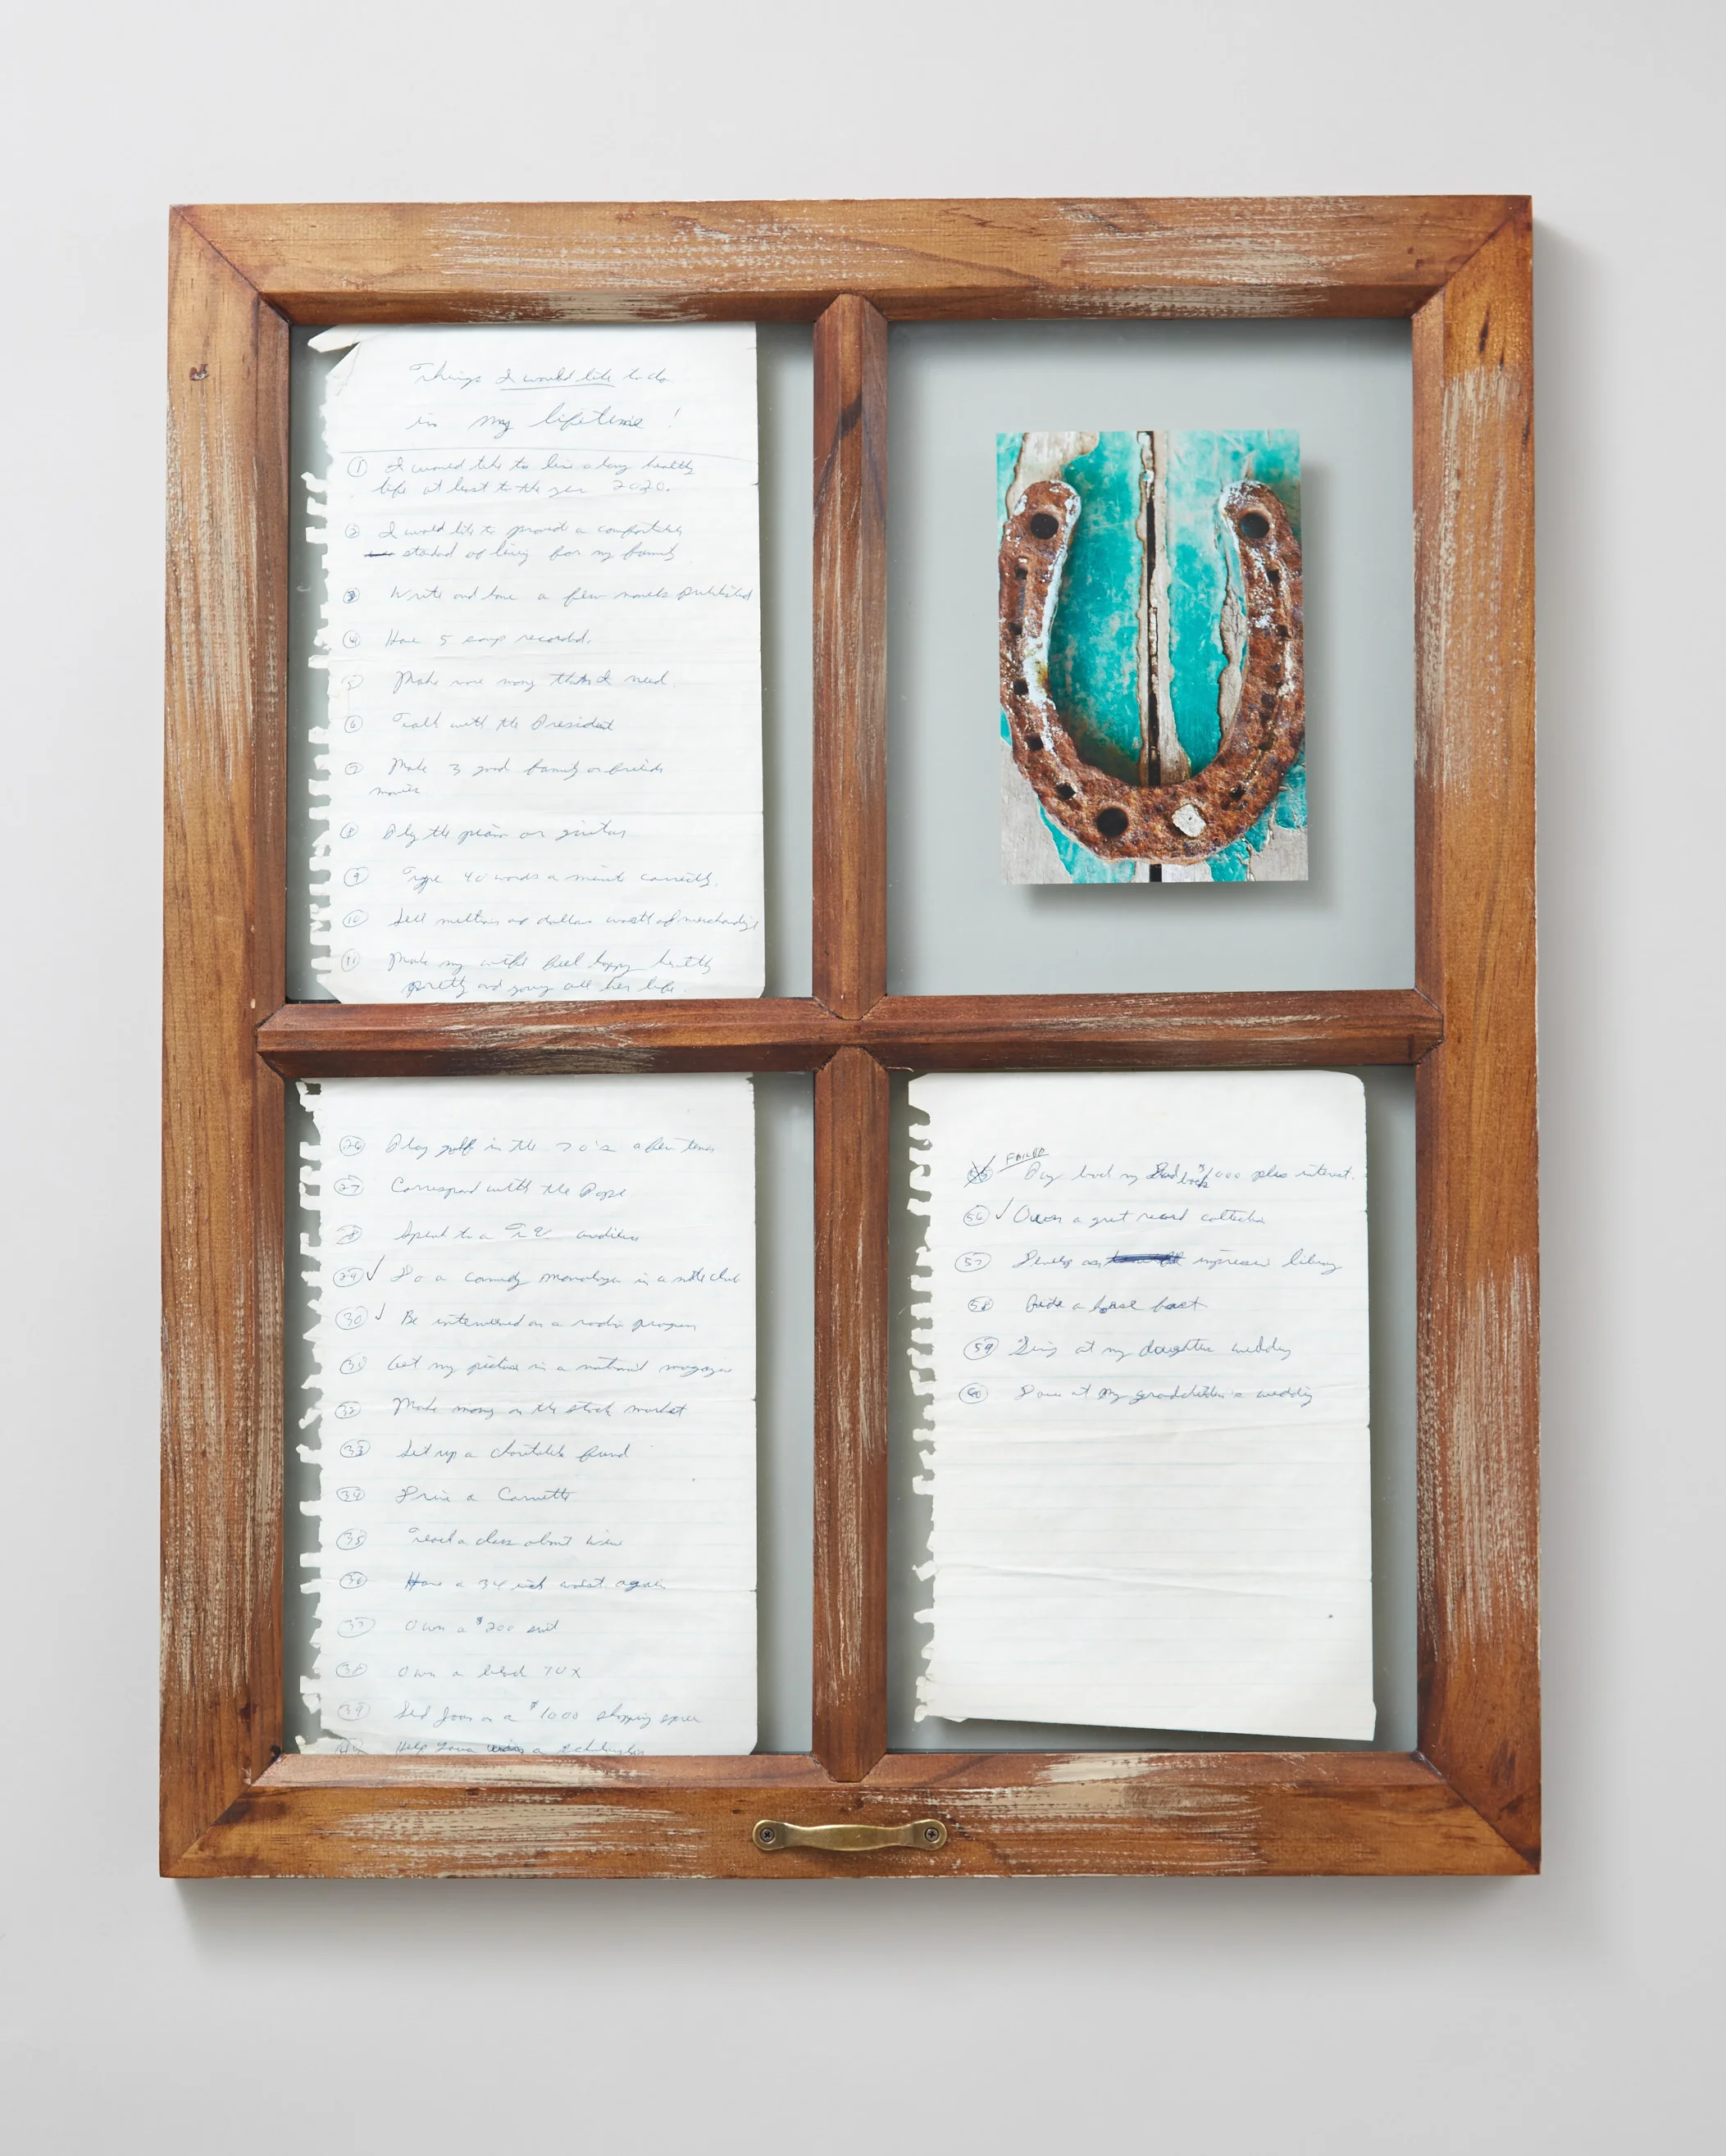 Things I would like to do
in my lifetime!
① I would like to live a long healthy
life at least to the year 2020.
② I would like to provid a comfortable
standard of living for my family
③ Write and have a few novels published
④ Have 5 songs recorded.
5 Make more money than I need.
⑥ Talk with the President
⑦ Make 3 good family or friends
movies
⑧ Play the piano or guitar
⑨ Type 40 words a minute correctly.
⑩ Sell millions of dollars worth of merchandise
⑪ Make my wife feel happy healthy
pretty and young all her life.
㉖ Play golf in the 70's a few times
㉗ Correspond with the Pope
28 Speak to a TV audience
㉙ ✓ Do a comedy monologue in a nite club
㉚ ✓ Be interviewed on a radio program
㉛ Get my picture in a national magazine
㉜ Make money in the stock market
㉝ Set up a charitable fund
㉞ Drive a Corvette
㉟ Teach a class about
㊱ Have a 34 inch waist again
㊲ Own a $200 suit
㊳ Own a black TUX
㊴ Send Joan on a $1000 shopping spree
Help a
FAILED
55 Pay back my Dad back $1000 plus interest.
56 ✓ Own a great record collection
57 Develop an impressive library
58 Ride a horse fast
59 Sing at my daughters wedding
60 Dance at my grandchildren's wedding